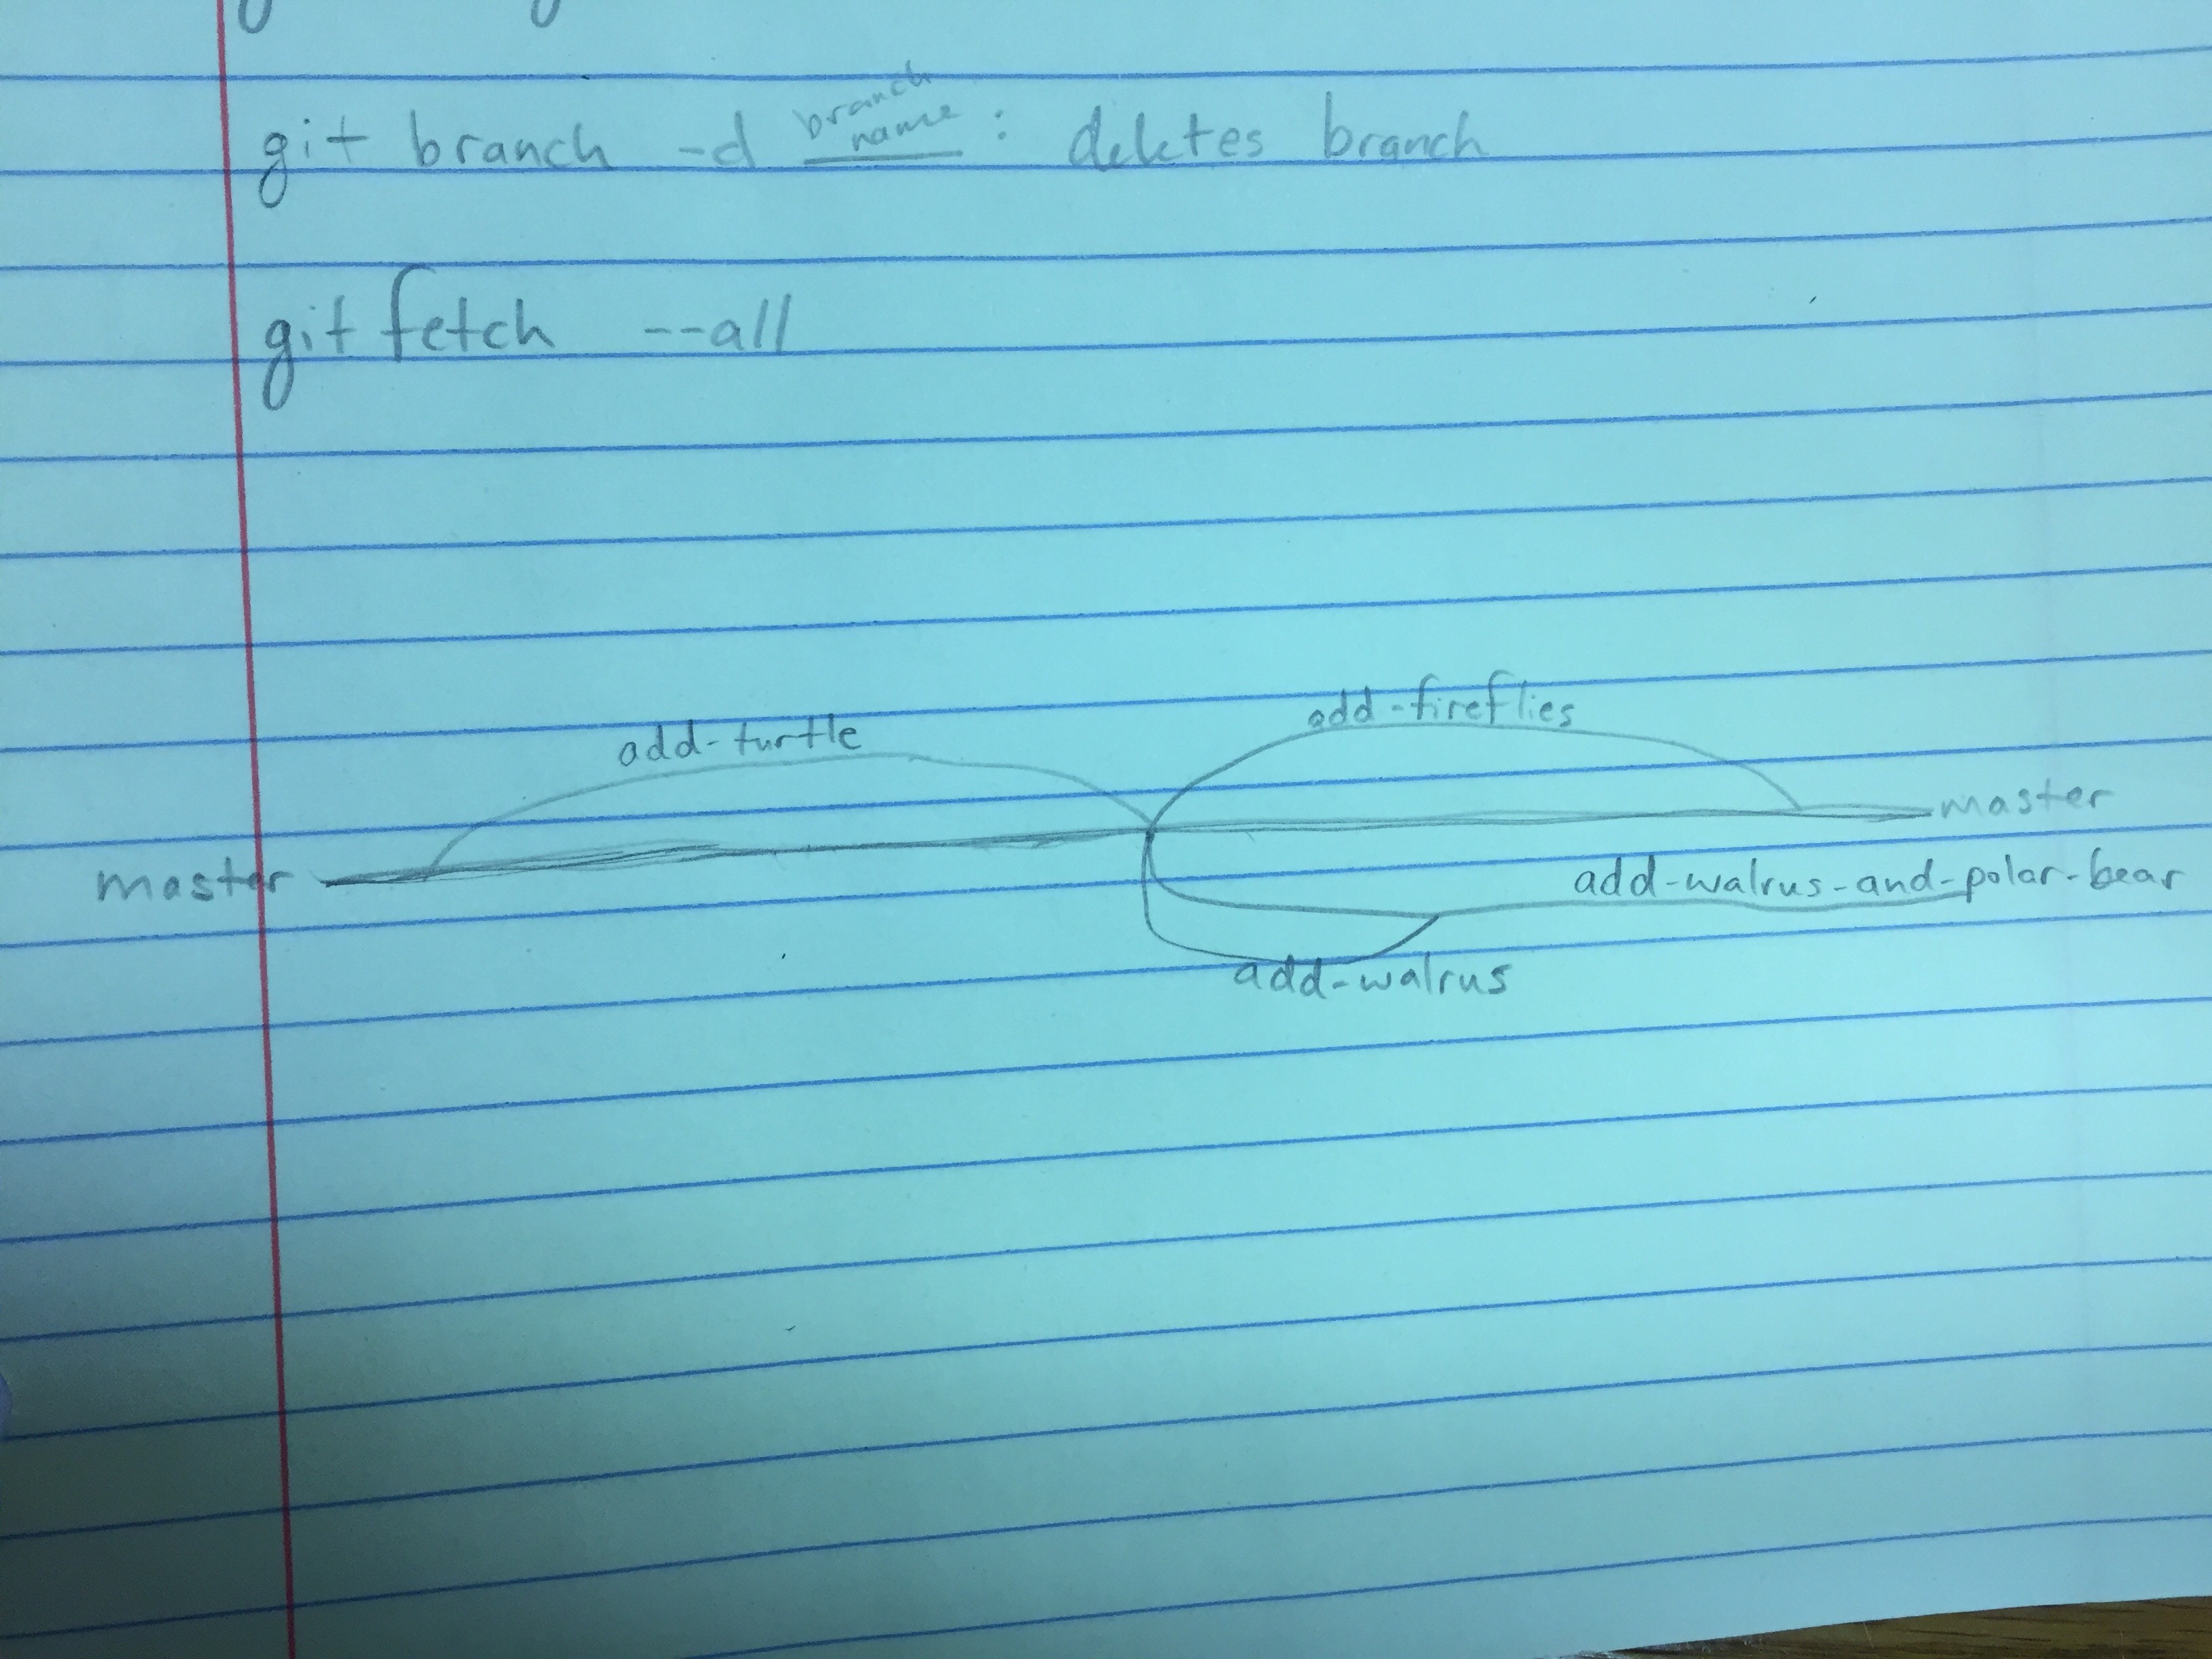 git branch -d branch name : deletes branch
git fetch --all
add-turtle
add-fireflies
master
master
add-walrus-and-polar-bear
add-walrus